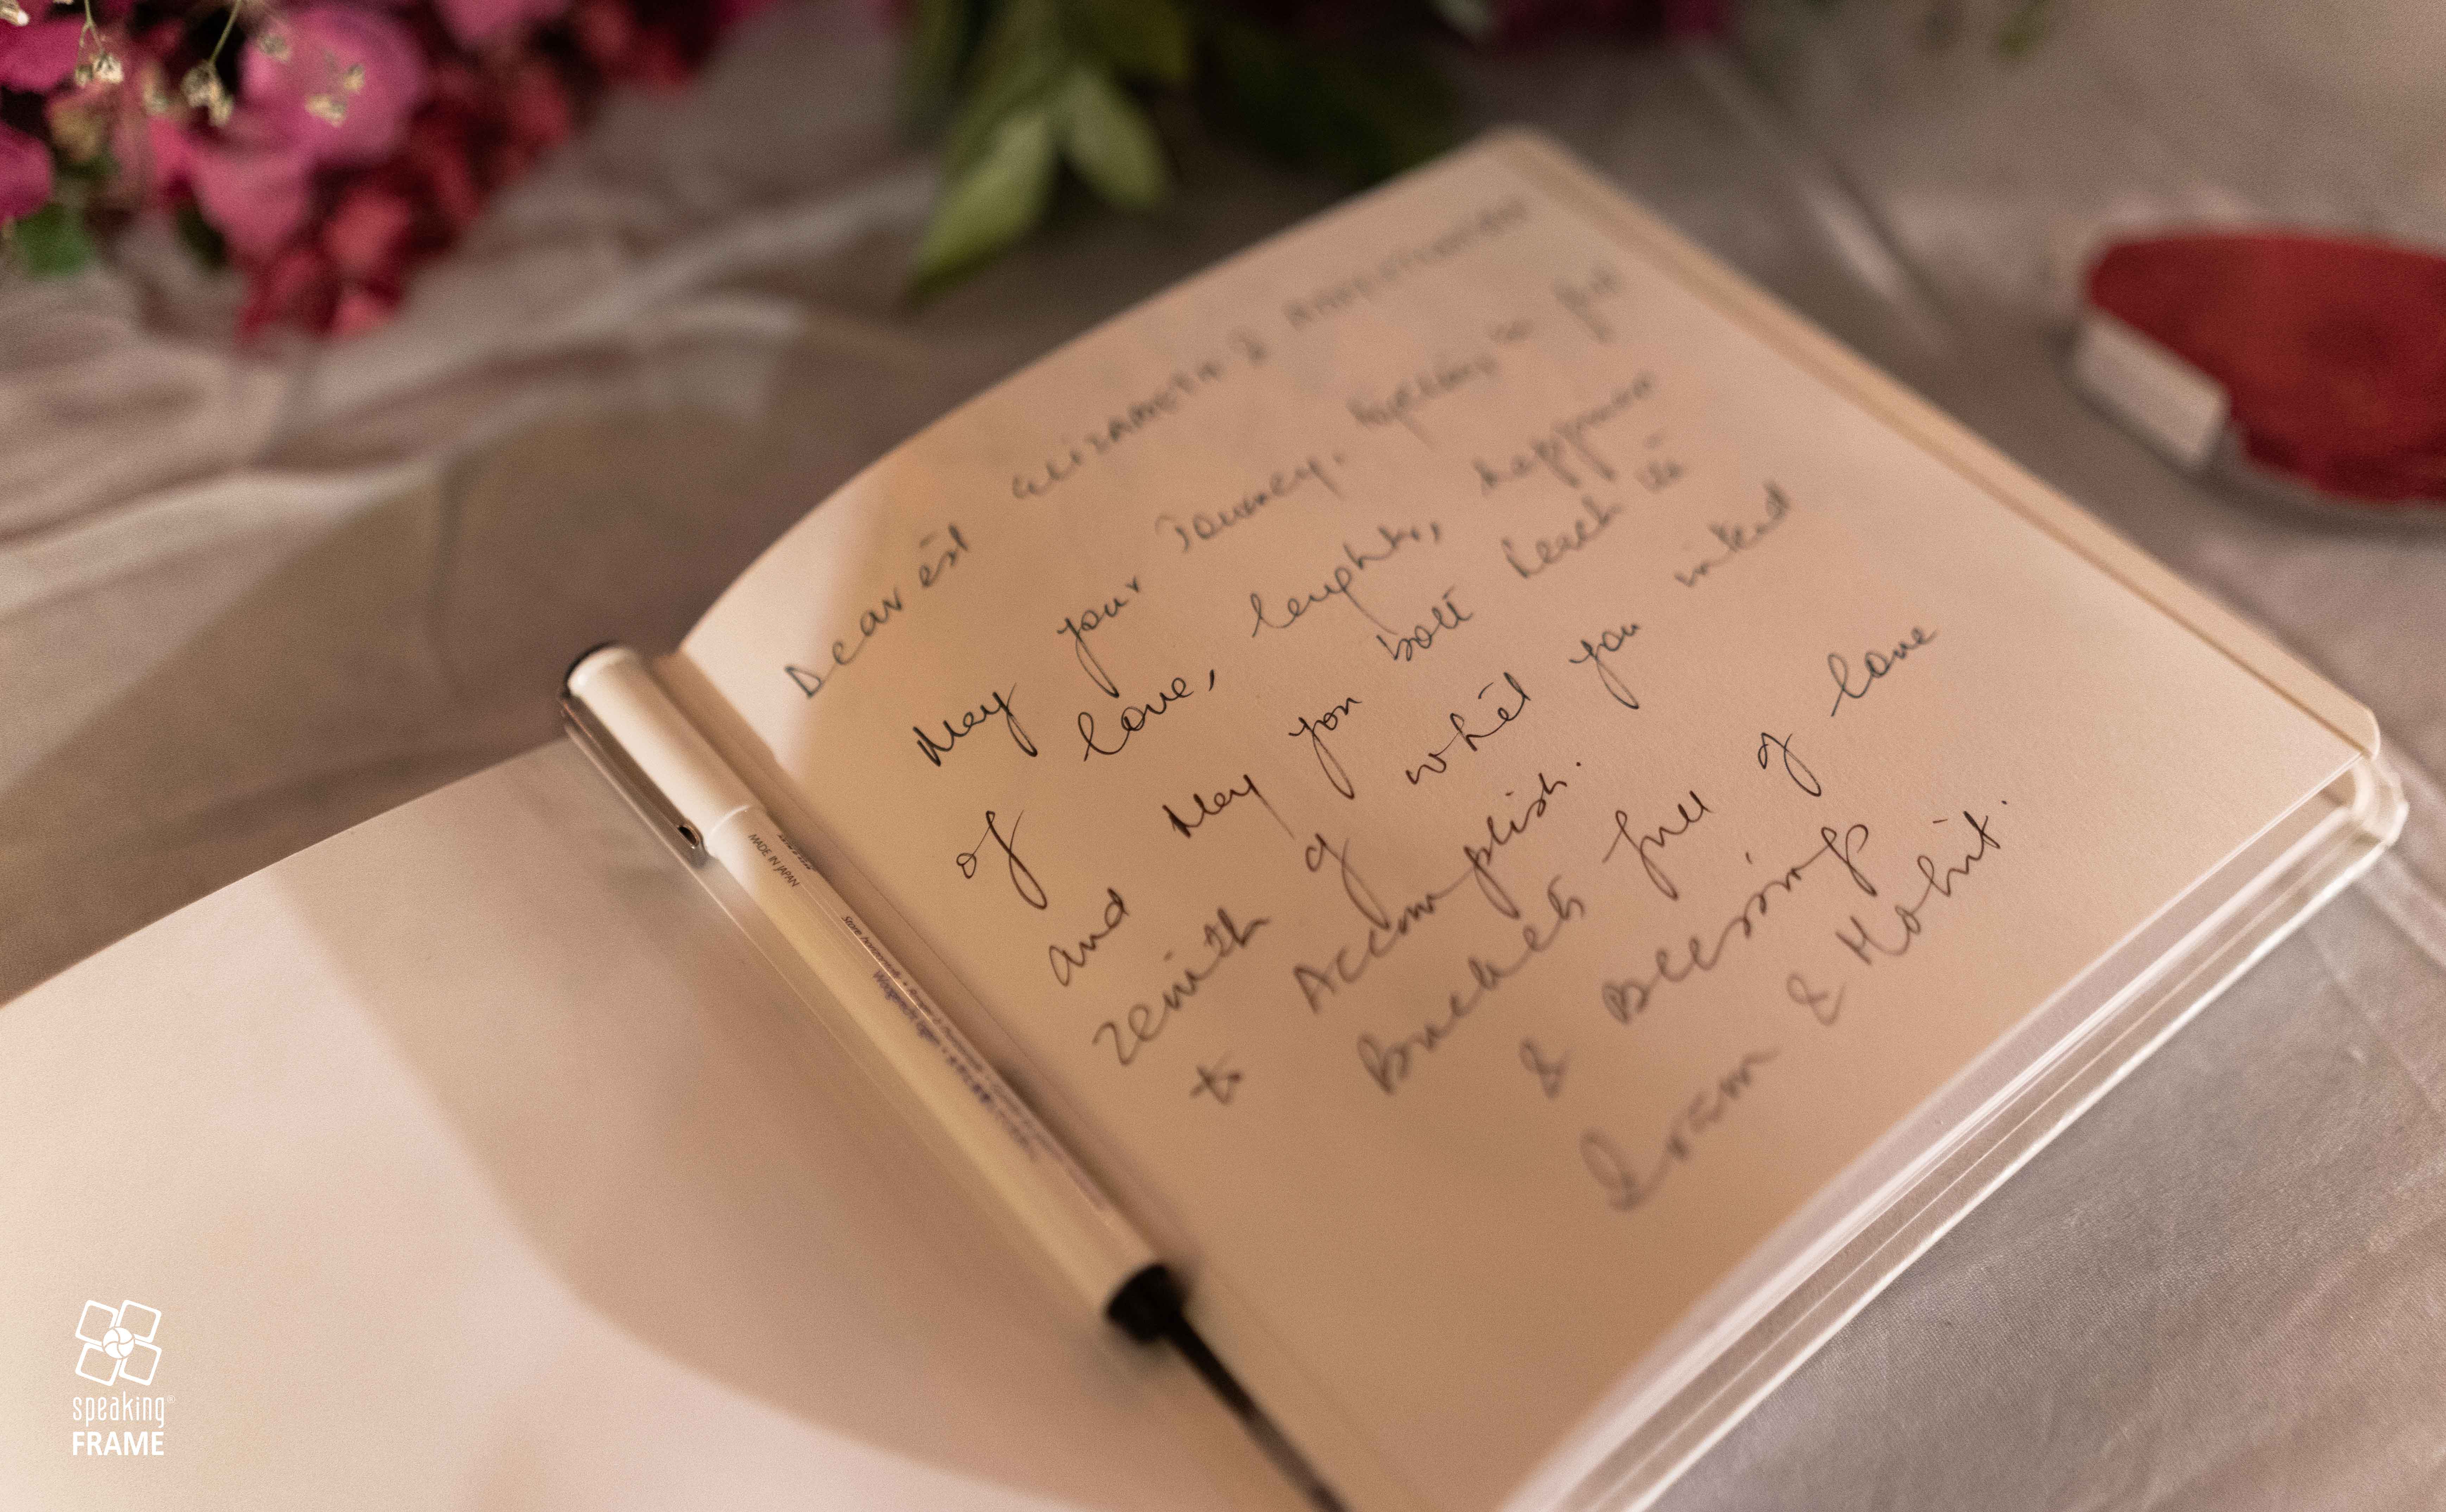 Dearest ELIZABETH &
May your Journey. be
of love, laughter, happiness
and May you both reach the
zenith of what you intend
to Accomplish.
Buckets full of love
& Blessings
Iram & Mohit.
MADE IN JAPAN
speaking®
FRAME